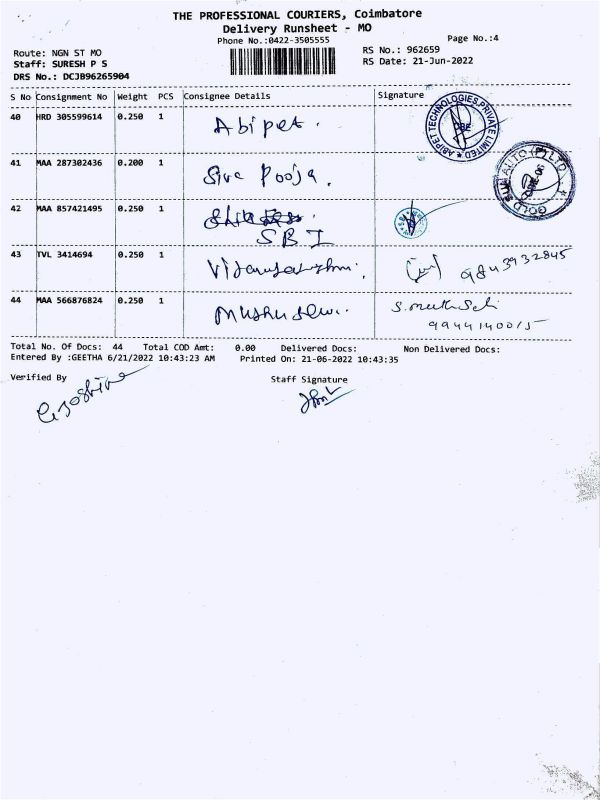 THE PROFESSIONAL COURIERS, Coimbatore
Delivery Runsheet - MO
Phone No.:0422-3505555
Page No.:4
Route: NGN ST MO
RS No.: 962659
Staff: SURESH P S
RS Date: 21-Jun-2022
DRS No.: DCJB96265904
S No Consignment No Weight PCS Consignee Details Signature
40 HRD 305599614 0.250 1 Abipet.
ABIPET TECHNOLOGIES PRIVATE LIMITED
CBE
41 MAA 287302436 0.200 1 Siva Pooja.
AUTO (P) LTD
GOLD
42 MAA 857421495 0.250 1
SBI
43 TVL 3414694 0.250 1 9843932845
44 MAA 566876824 0.250 1
9944140015
Total No. Of Docs: 44 Total COD Amt: 0.00 Delivered Docs: Non Delivered Docs:
Entered By :GEETHA 6/21/2022 10:43:23 AM Printed On: 21-06-2022 10:43:35
Verified By Staff Signature